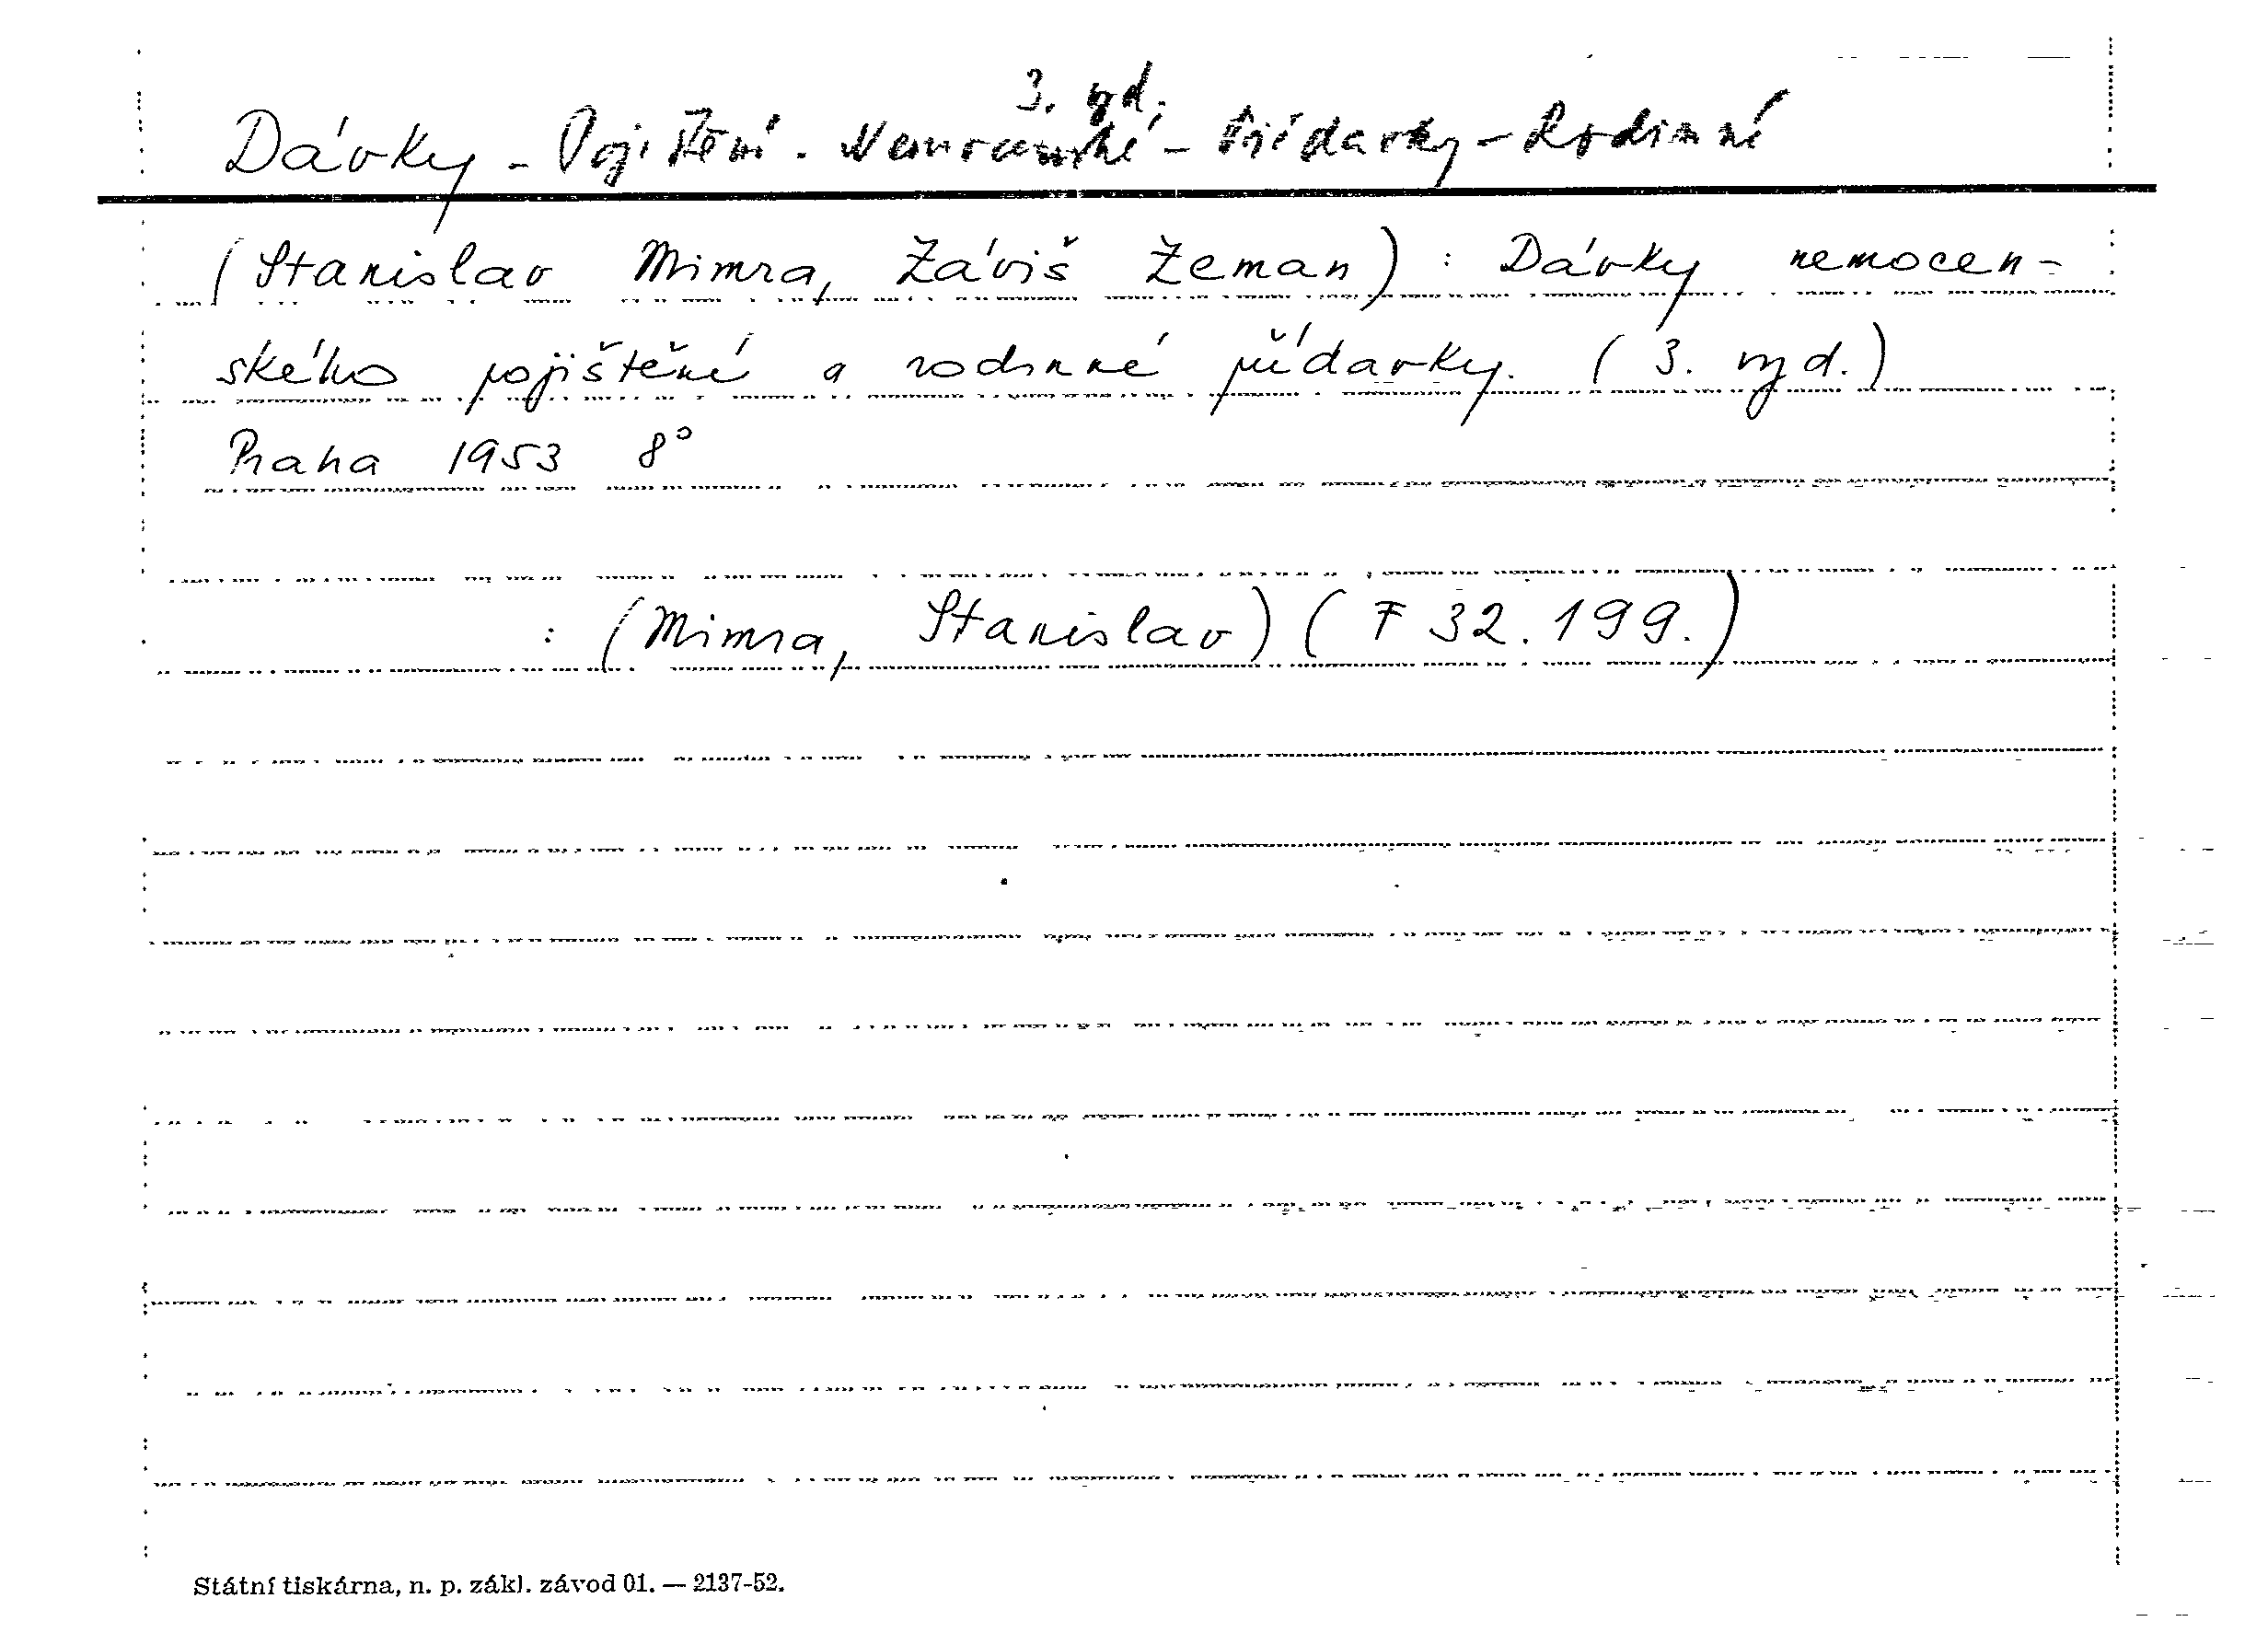 3. vyd.
Dávky - Pojištění - Nemocenské - Přídavky - Rodinné
(Stanislav Mimra, Záviš Zeman) : Dávky nemocen-
ského pojištění a rodinné přídavky. (3. vyd.)
Praha 1953 8°
: (Mimra, Stanislav) (F 32.199.)
Státní tiskárna, n. p. zákl. závod 01. — 2137-52.